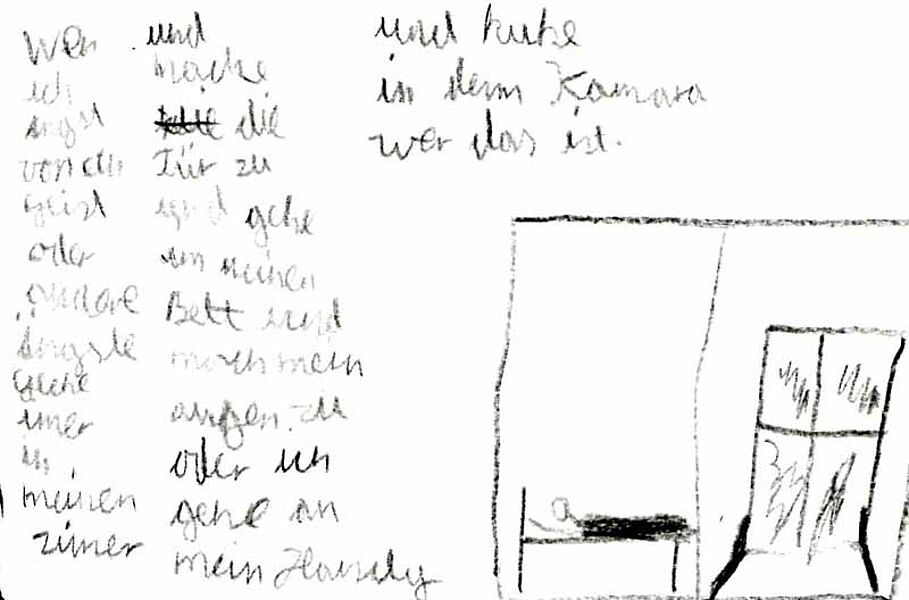 Wen
ich
angst
von ein
geist
oder
andare
ängste
Gehe
imer
in
meinen
zimer
und
mache
die
Tür zu
und gehe
in meinen
Bett und
mach mein
augen zu
oder ich
gehe an
mein Handy
und kuke
in denn Kamara
wer das ist.